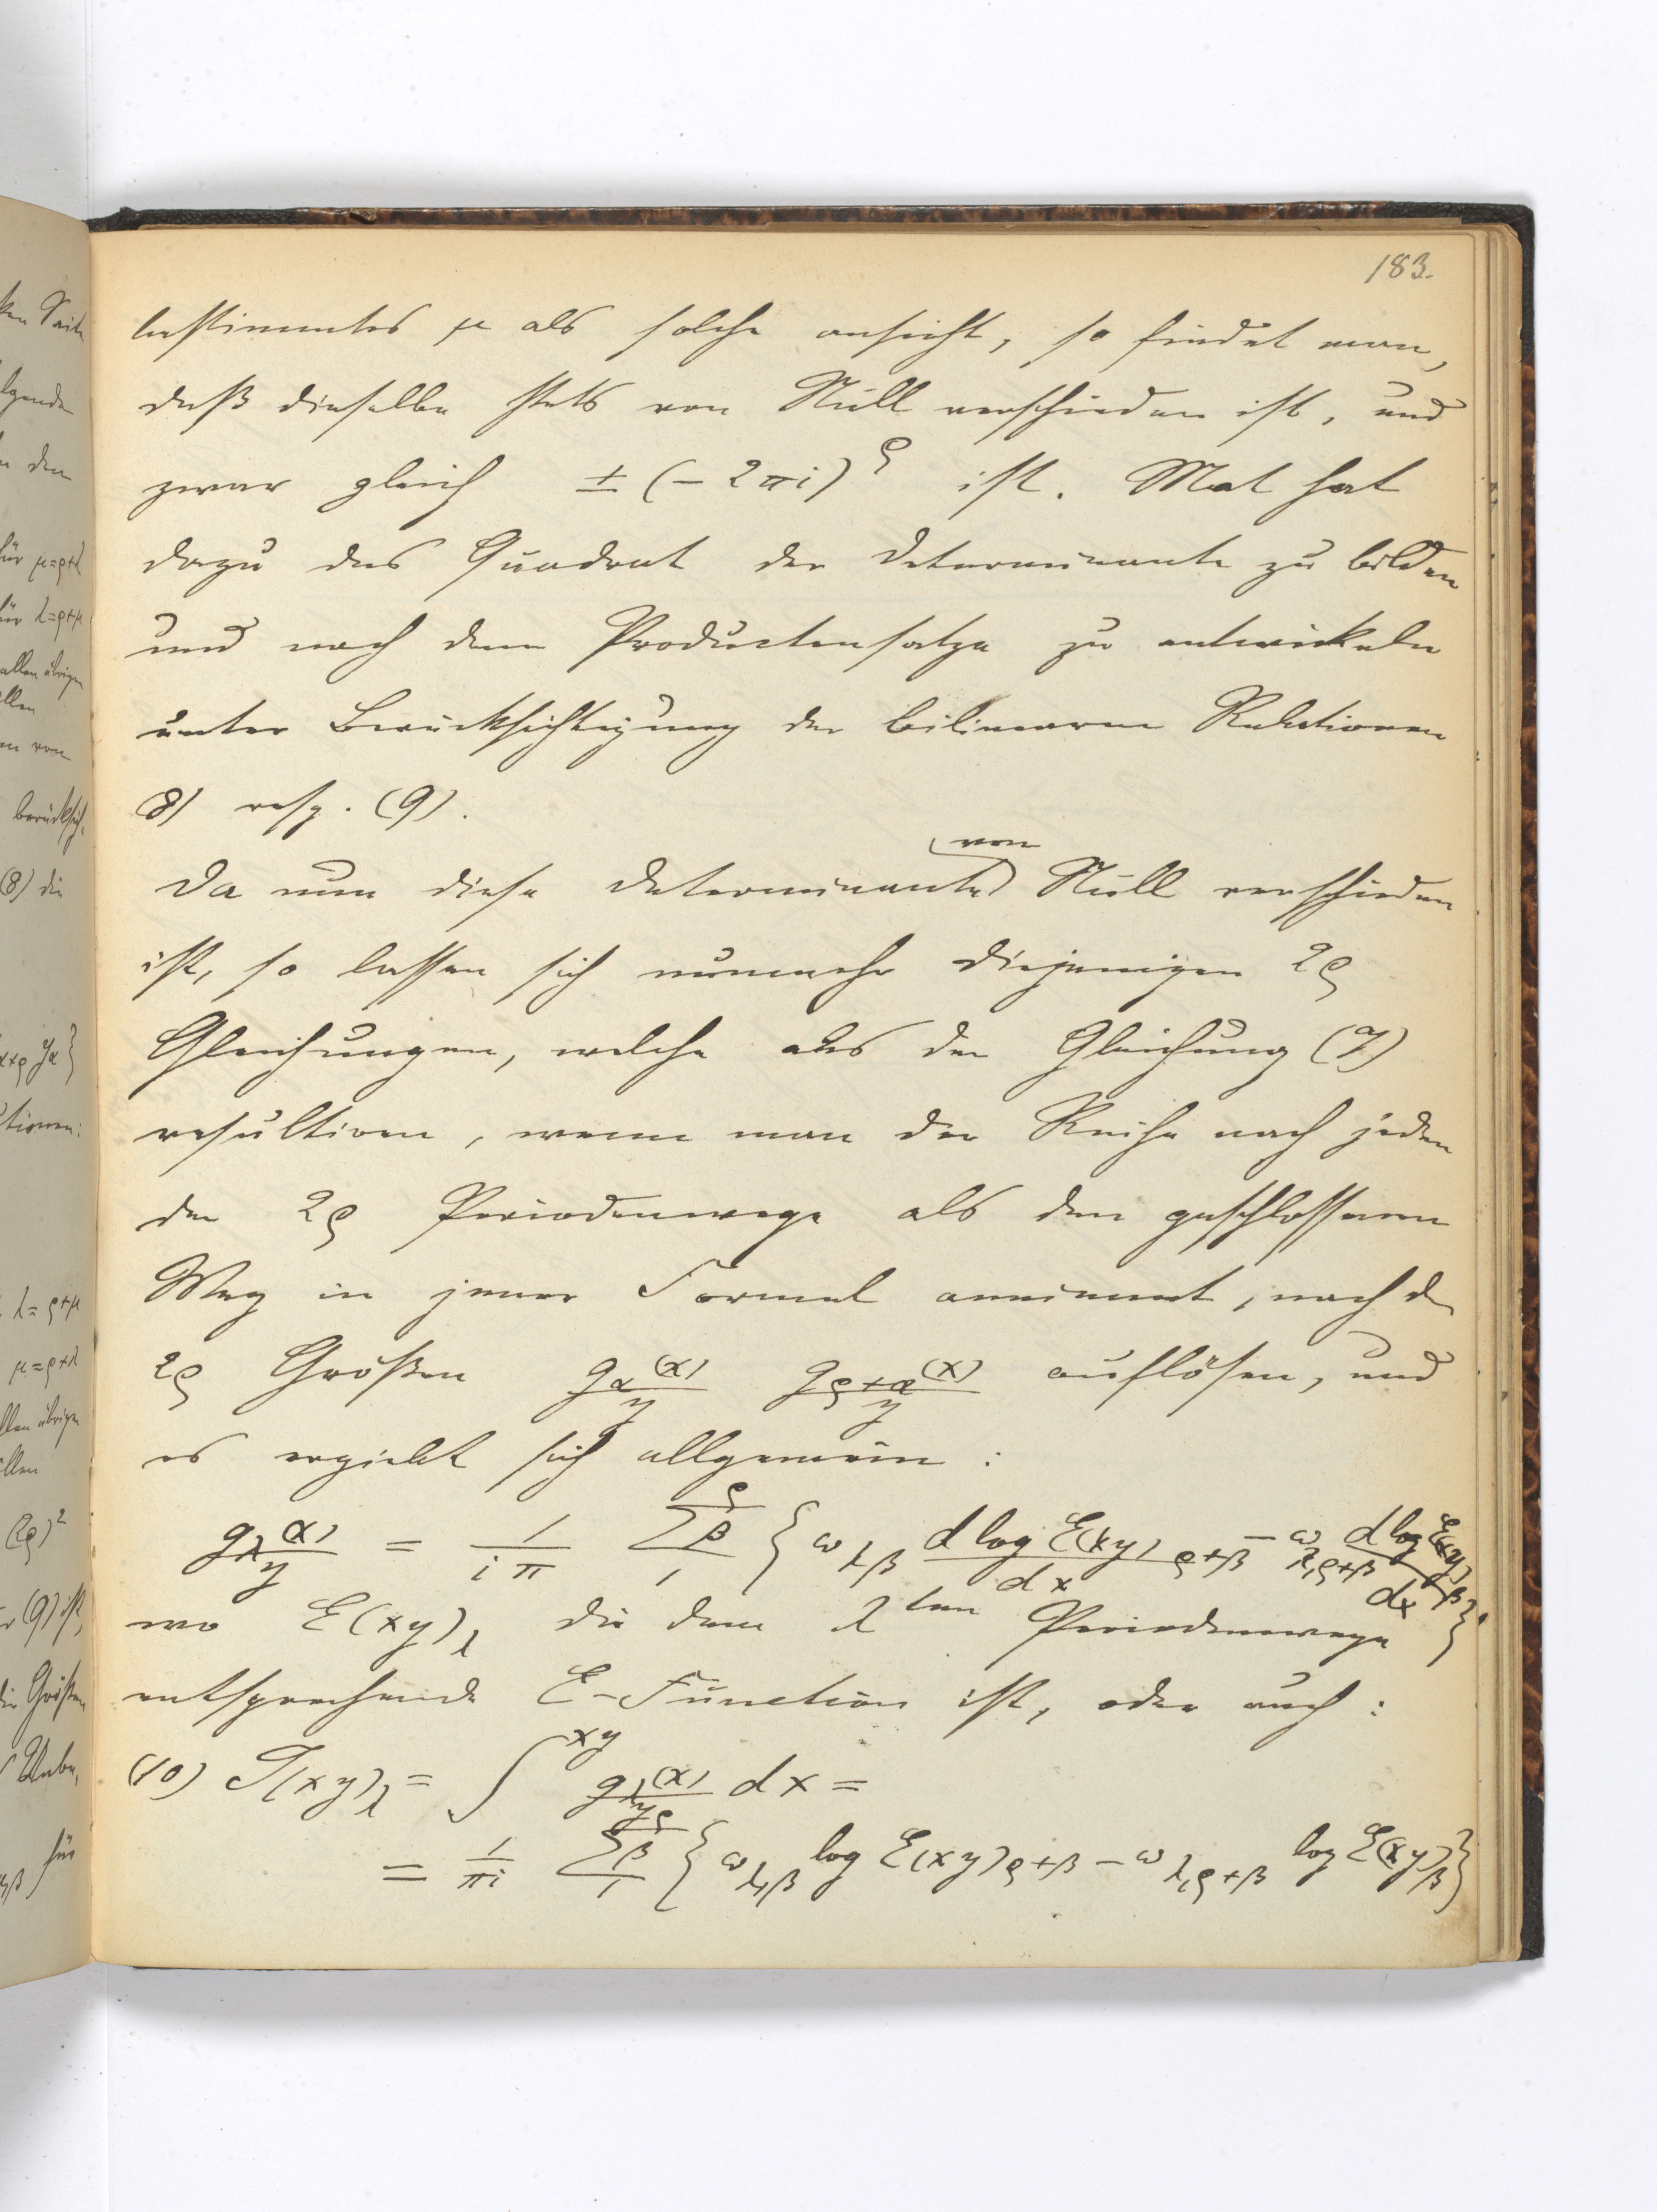 183.
bestimmtes μ als solche ansieht, so findet man,
daß dieselbe stets von Null verschieden ist, und
zwar gleich ± (- 2πi)^ρ ist. Mat hat
dazu das Quadrat der Determinante zu bilden
und nach dem Productensatze zu entwickeln
unter Berücksichtigung der bilinearen Relationen
8) resp. (9).
Da nun diese Determinante von Null verschieden
ist, so lassen sich nunmehr diejenigen 2ρ
Gleichungen, welche aus der Gleichung (7)
resultiren, wenn man der Reihe nach jeden
der 2ρ Periodenwege als den geschlossenen
Weg in jener Formel annimmt, nach den
2ρ Größen g_α(x)/y g_{ρ+α}(x)/y auflösen, und
es ergiebt sich allgemein :
g_λ(x)/y = 1/(iπ) Σ_β_1^ρ { ω_{λβ} d log E(xy)_{ρ+β}/dx - ω_{λ,ρ+β} d log E(xy)_β/dx }
wo E(xy)_λ die dem λ^ten Periodenwege
entsprechende E-Function ist, oder auch :
(10) J(xy)_λ = ∫^{xy} g_λ(x)/y dx =
= 1/(πi) Σ_β_1^ρ { ω_{λ,β} log E(xy)_{ρ+β} - ω_{λ,ρ+β} log E(xy)_β }